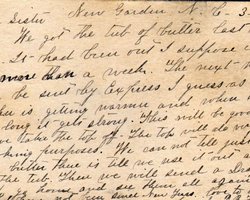 Sister New Garden N. C. 3
We got the tub of butter last
It had been out I suppose
more than a week. The next
be sent by Express I guess as
is getting warmer and when
long it gets strong. This will be good
take the top off. The tub will do
king purposes. We can not tell just
butter there is till we use it out
the tub. Then we will send a Dra
go home and see them all
not been since New Years. love to